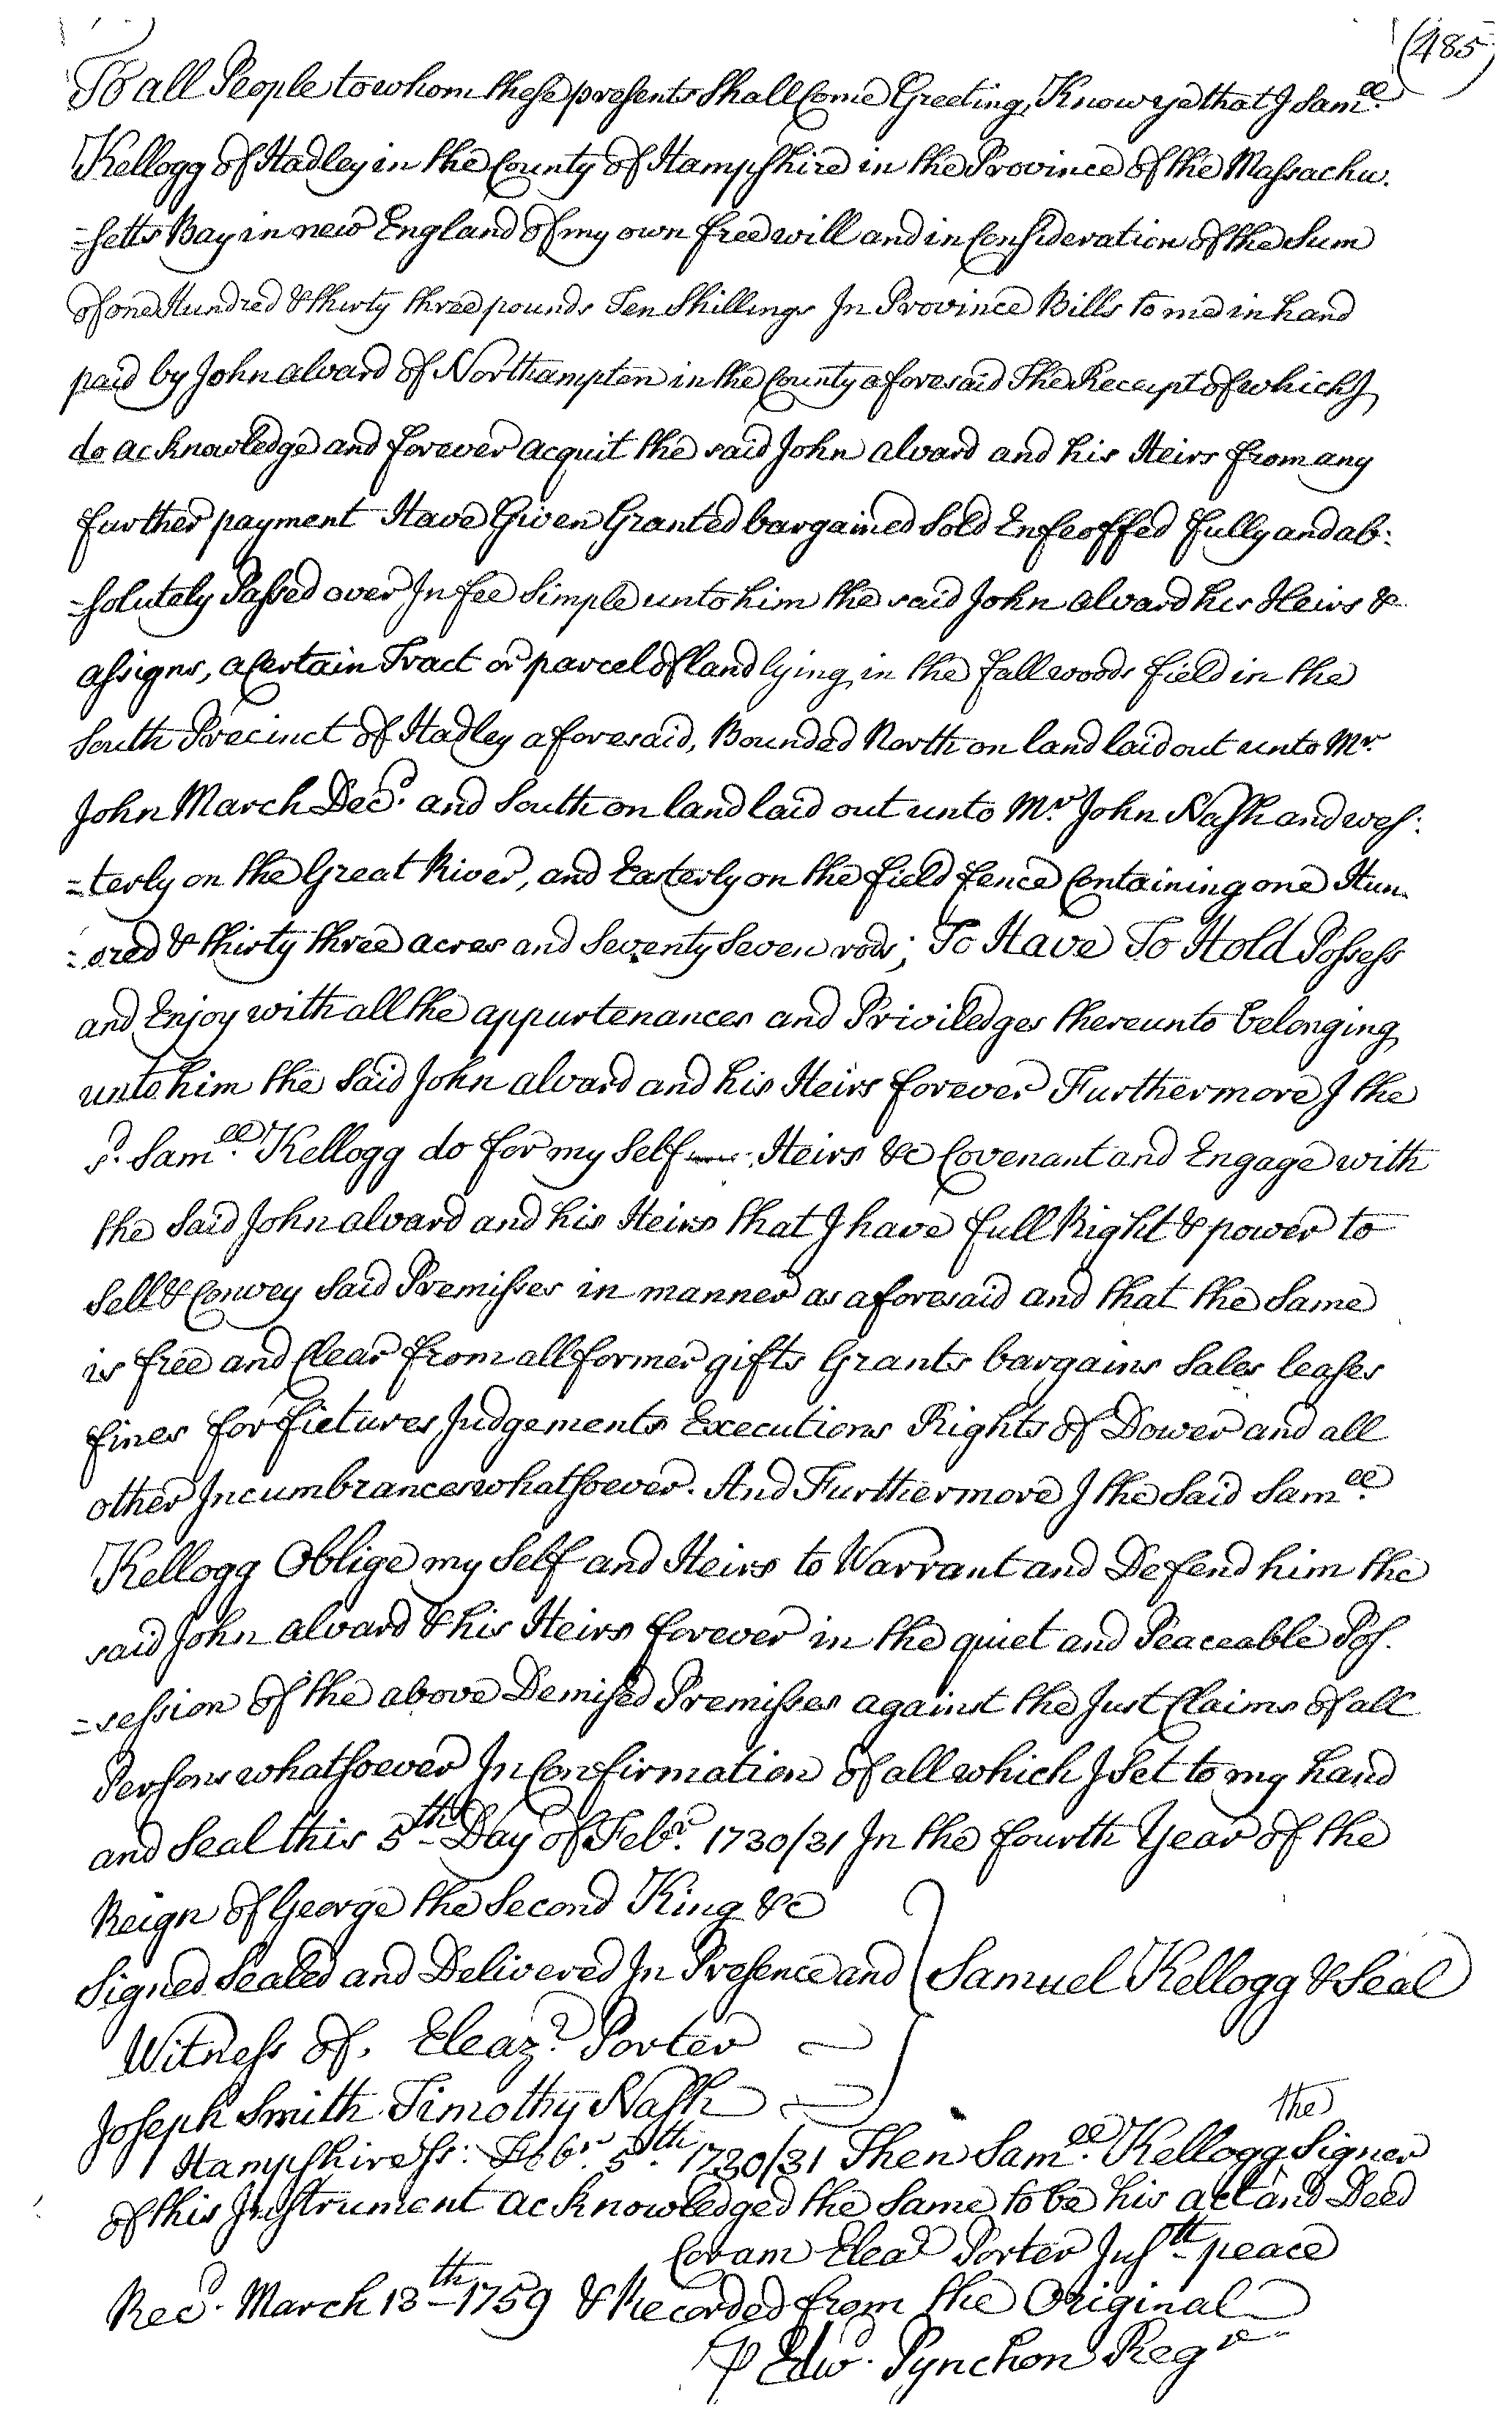 (485)
To all People to whom these presents Shall Come Greeting, Know ye that I Samll.
Kellogg of Hadley in the County of Hampshire in the Province of the Massachu.
=setts Bay in new England of my own free will and in Consideration of the Sum
of one Hundred & thirty three pounds Ten Shillings In Province Bills to me in hand
paid by John alvard of Northampton in the County aforesaid The Receipt of which I
do acknowledge and forever acquit the said John alvard and his Heirs from any
further payment Have Given Granted bargained Sold Enfeoffed fully and ab:
=solutely Passed over In fee Simple unto him the said John alvard his Heirs &
assigns, a Certain Tract or parcel of land lying in the fallwoods field in the
South Precinct of Hadley aforesaid, Bounded North on land laid out unto Mr.
John March Decd. and South on land laid out unto Mr. John Nash and wes:
=terly on the Great River, and Easterly on the field fence Containing one Hun.
=dred & thirty three acres and Seventy Seven rods; To Have To Hold Possess
and Enjoy with all the appurtenances and Priviledges thereunto belonging
unto him the Said John alvard and his Heirs forever Furthermore I the
sd. Samll. Kellogg do for my Self Heirs &c Covenant and Engage with
the Said John alvard and his Heirs that I have full Right & power to
Sell & Convey Said Premisses in manner as aforesaid and that the Same
is free and Clear from all former gifts Grants bargains Sales leases
fines forfietures Judgements Executions Rights of Dower and all
other Incumbrances whatsoever. And Furthermore I the Said Samll.
Kellogg Oblige my Self and Heirs to Warrant and Defend him the
said John alvard & his Heirs forever in the quiet and Peaceable Pos.
=session of the above Demised Premisses against the Just Claims of all
Persons whatsoever In Confirmation of all which I Set to my hand
and Seal this 5th Day of Febr. 1730/31 In the fourth Year of the
Reign of George the Second King &c
Signed Sealed and Delivered In Presence and Samuel Kellogg & Seal
Witness of. Eleazr. Porter
Joseph Smith Timothy Nash
Hampshire Ss: Febr. 5th. 1730/31 Then Samll. Kellogg the Signer
of this Instrument acknowledged the Same to be his act and Deed
Coram Eleazr Porter Justt peace
Recd. March 13th 1759 & Recorded from the Original
P Edwd. Pynchon Regr